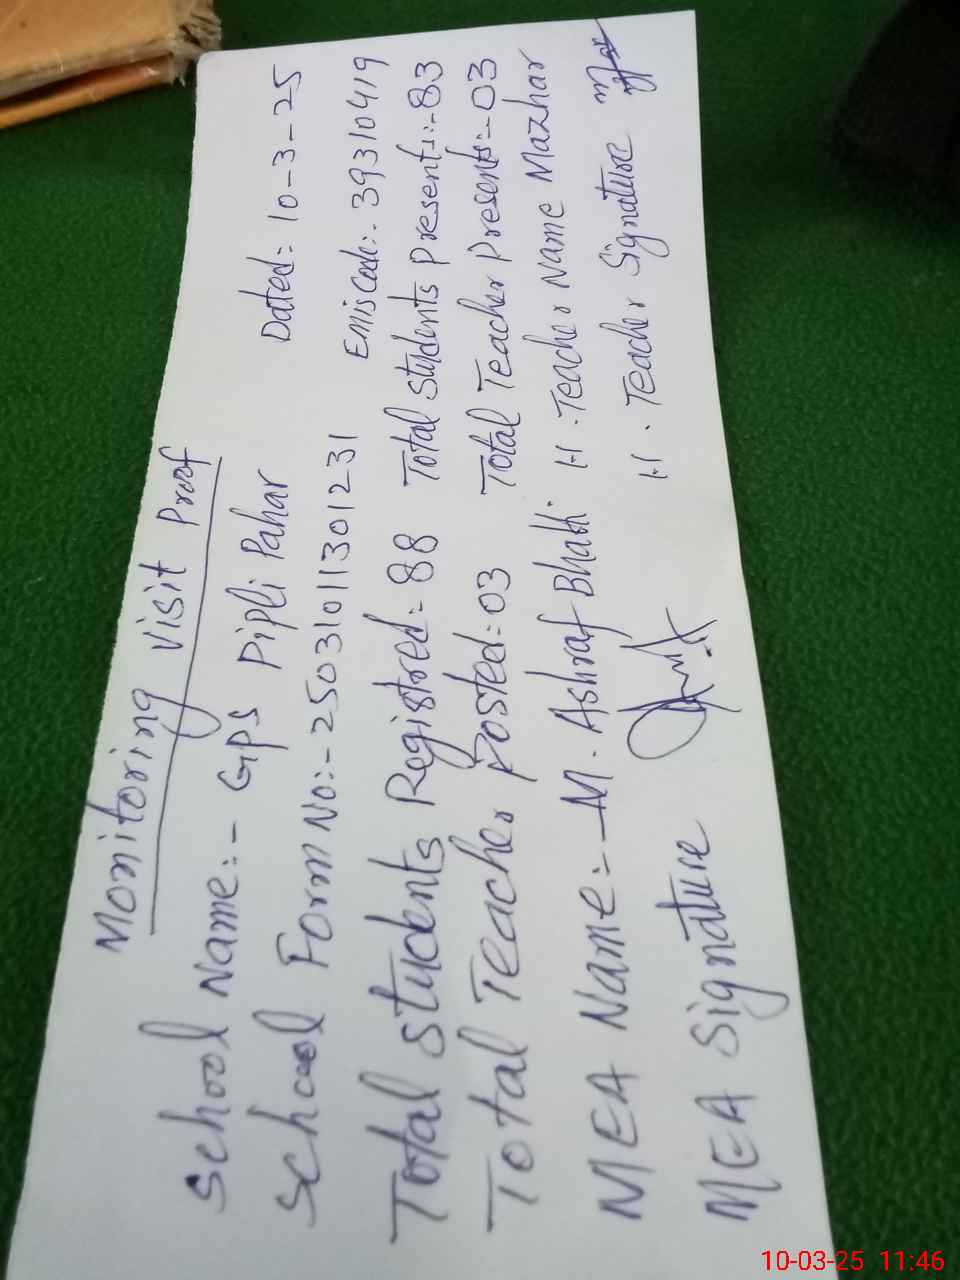 Monitoring Visit Proof
School Name:- GPS Pipli Pahar Dated: 10-3-25
School Form No:- 25031011301231 Emis Code:- 39310419
Total Students Registred:- 88 Total Students Present:- 83
Total Teacher Posted:- 03 Total Teacher Present:- 03
MEA Name:- M. Ashraf Bhatti H. Teacher Name Mazhar
MEA Signature H. Teacher Signature
10-03-25 11:46